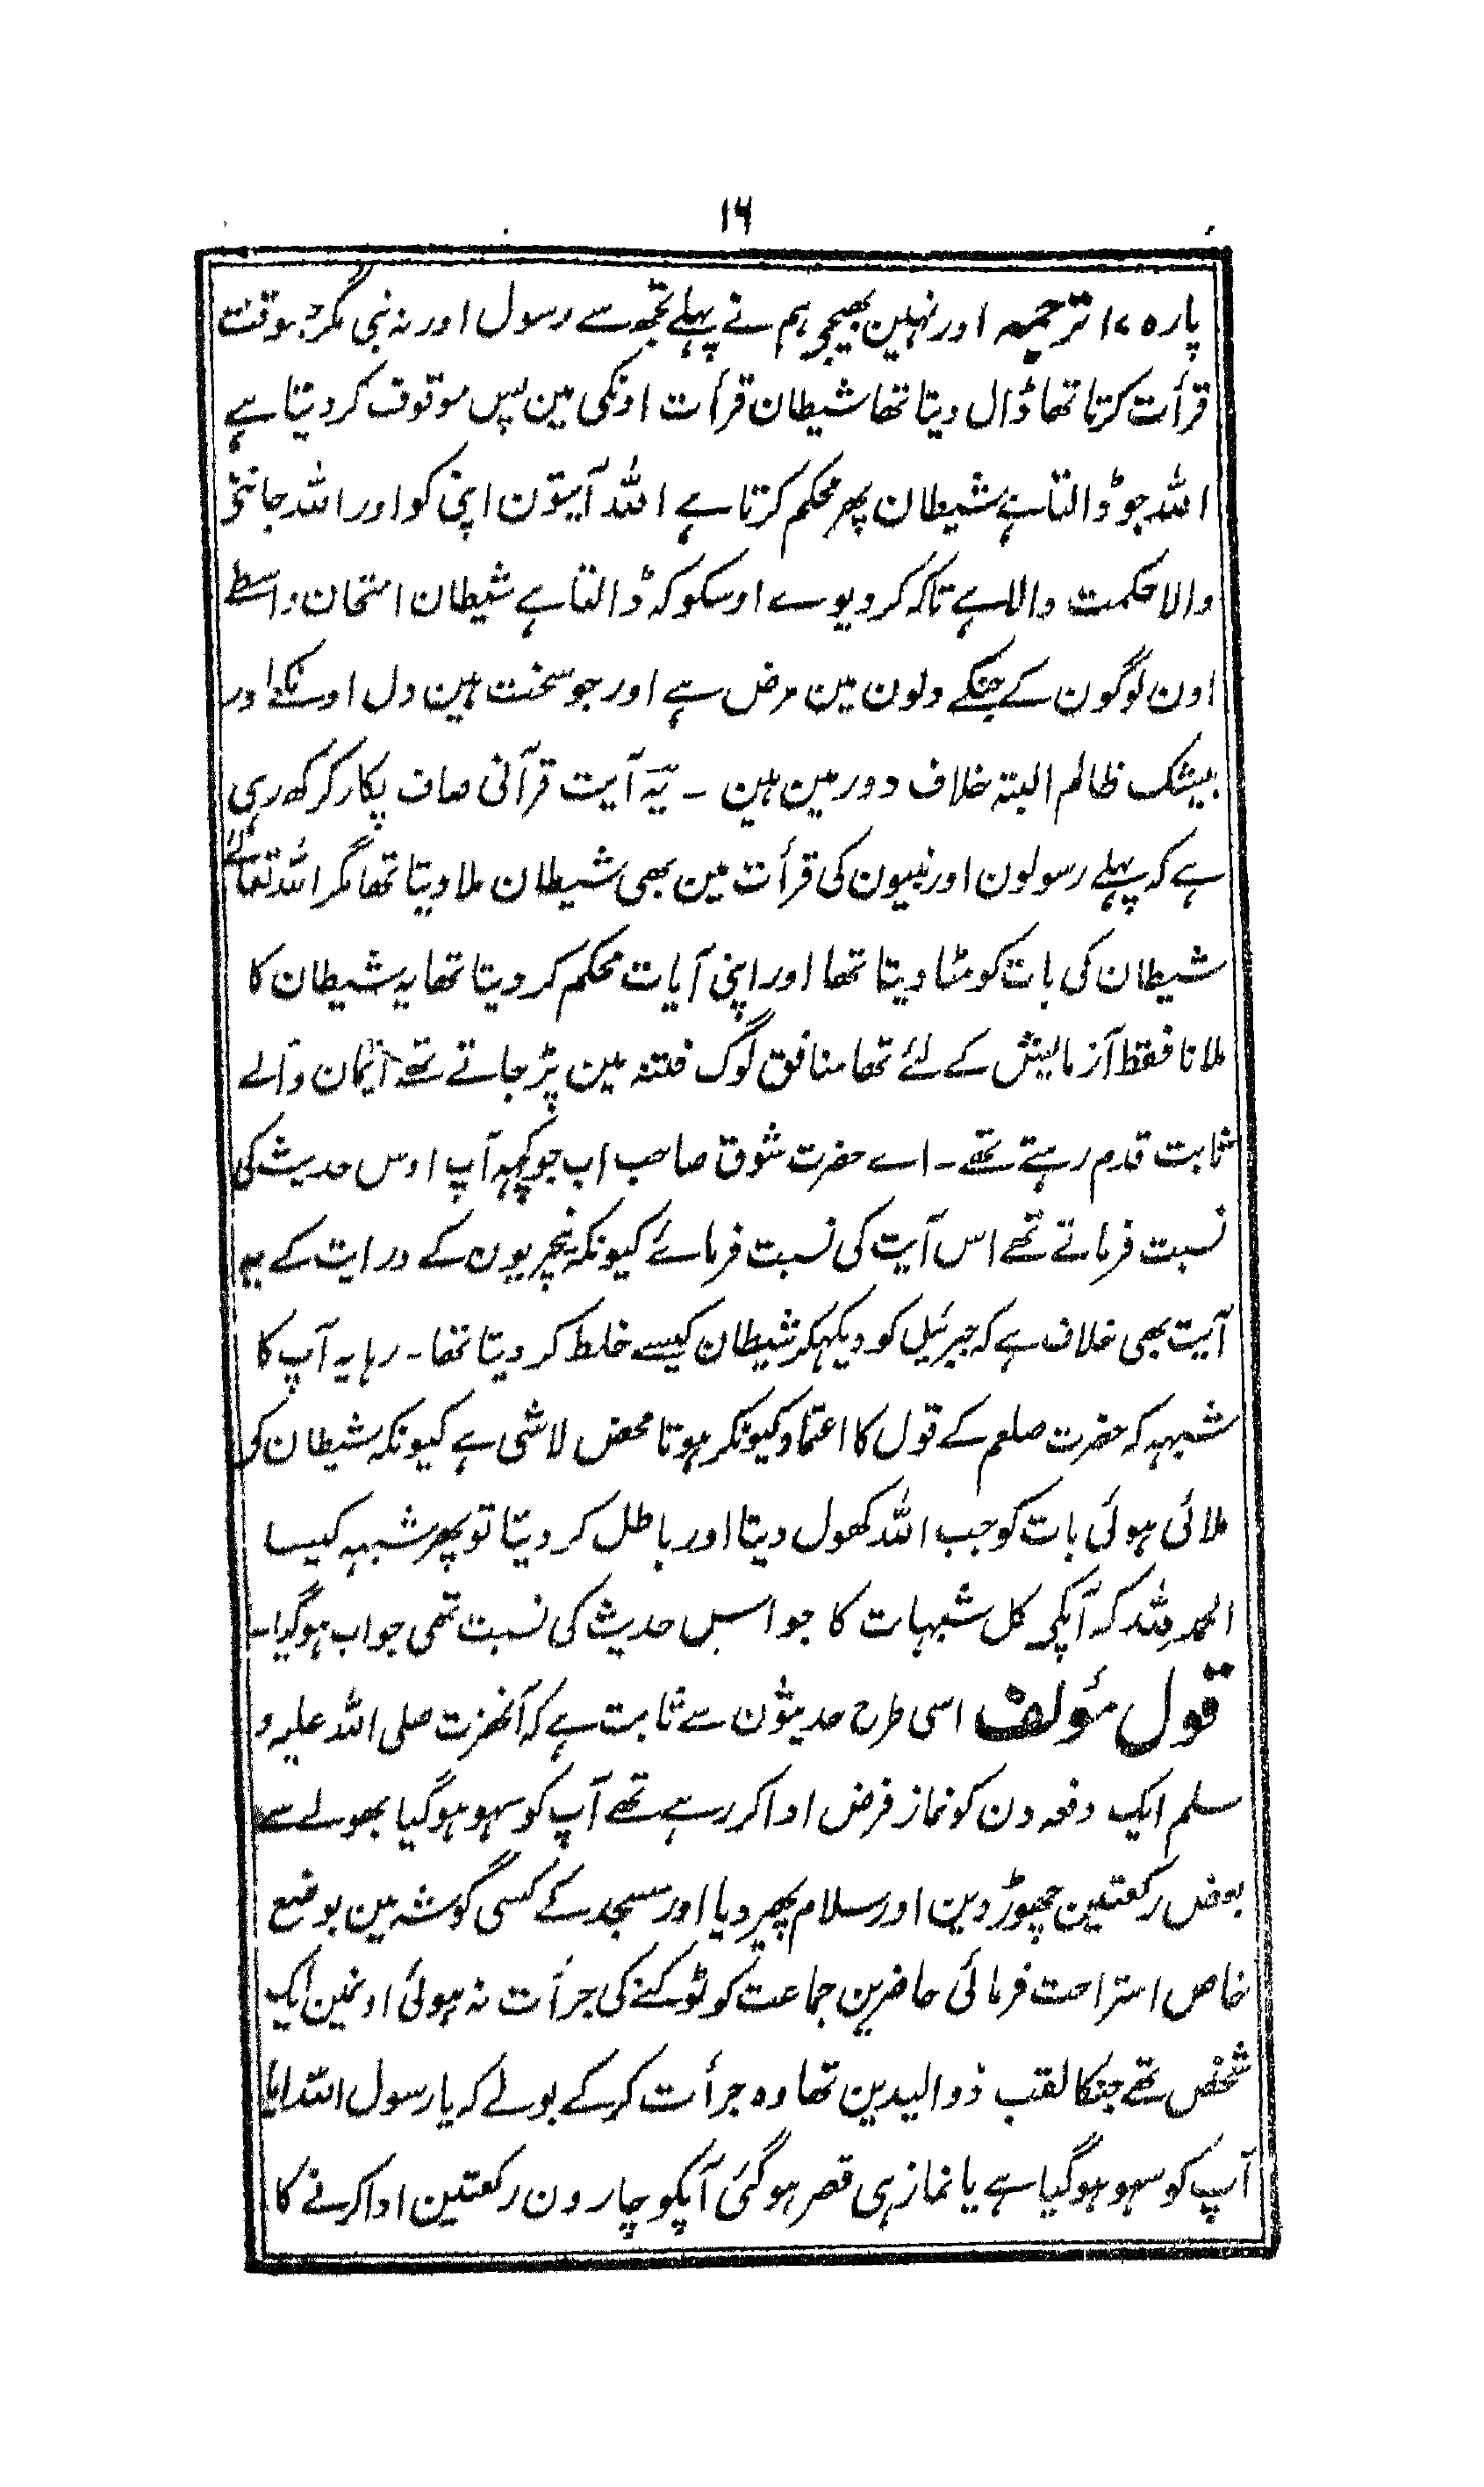 ۱۶
پارہ ۱۷ ترجمہ اور نہین بھیجے ہم نے پہلے تجھ سے رسول اور نہ نبی مگر جسوقت
قرأت کرتا تھا ڈال دیتا تھا شیطان قرأت اونکی مین پس موقوف کر دیتا ہے
اللہ جو ڈالتا ہے شیطان پھر محکم کرتا ہے اللہ آیتون اپنی کو اور اللہ جاننے
والا حکمت والا ہے تاکہ کر دیوے اوسکو کہ ڈالتا ہے شیطان امتحان واسطے
اون لوگون کے جنکے دلون مین مرض ہے اور جو سخت ہین دل اونکے اور
بیشک ظالم البتہ خلاف دور مین ہین ۔ یہ آیت قرآنی صاف پکار کر کہہ رہی
ہے کہ پہلے رسولون اور نبیون کی قرأت مین بھی شیطان ملا دیتا تھا مگر اللہ تعالےٰ
شیطان کی بات کو مٹا دیتا تھا اور اپنی آیات محکم کر دیتا تھا یہ شیطان کا
ملانا فقط آزمایش کے لئے تھا منافق لوگ فتنہ مین پڑ جاتے تھے ایمان والے
ثابت قدم رہتے تھے ۔ اے حضرت شوق صاحب اب جو کچہہ آپ اوس حدیث کی
نسبت فرماتے تھے اس آیت کی نسبت فرمائے کیونکہ نیچریون کے درایت کے یہ
آیت بھی خلاف ہے کہ جبرئیل کو دیکہکر شیطان کیسے خلط کر دیتا تھا ۔ رہا یہ آپ کا
شبہہ کہ حضرت صلعم کے قول کا اعتماد کیونکر ہوتا محض لاشی ہے کیونکہ شیطان کی
ملائی ہوئی بات کو جب اللہ کھول دیتا اور باطل کر دیتا تو پھر شبہہ کیسا
الحمد للہ کہ آپکی کل شبہات کا جو اسس حدیث کی نسبت تھی جواب ہوگیا ۔
قول مؤلف اسی طرح حدیثون سے ثابت ہے کہ آنحضرت صلی اللہ علیہ و
سلم ایک دفعہ دن کو نماز فرض ادا کر رہے تھے آپ کو سہو ہوگیا بھولے سے
بعض رکعتین چھوڑ دین اور سلام پھیر دیا اور مسجد کے کسی گوشہ مین بوضع
خاص استراحت فرمائی حاضرین جماعت کو ٹوکنے کی جرأت نہ ہوئی اونمین ایک
شخص تھے جنکا لقب ذوالیدین تھا وہ جرأت کرکے بولے کہ یا رسول اللہ ایا
آپ کو سہو ہوگیا ہے یا نماز ہی قصر ہوگئی آپکو چارون رکعتین ادا کرنے کا